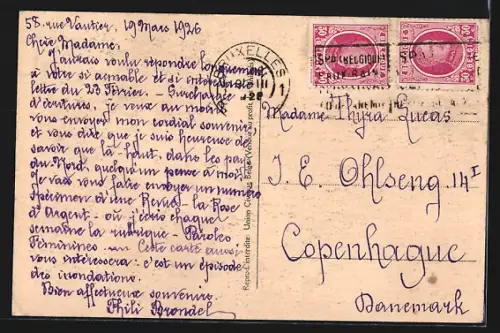 58, rue Vautier, 19 Mars 1926
Chère Madame,
J'aurais voulu répondre longuement
à votre si aimable et si intéressante
lettre du 23 Février. - Surchargée
d'écritures, je veux au moins
vous envoyer mon cordial souvenir
et vous dire que je suis heureuse de
savoir que là-haut, dans les pays
du Nord, quelqu'un pense à moi.
Je vais vous faire envoyer un numéro
spécimen d'une Revue - La Rose
d'Argent - où j'écris chaque
semaine la rubrique - Paroles
Féminines - Cette carte aussi
vous intéressera: c'est un épisode
des inondations.
Bien affectueux souvenirs.
BRUXELLES
1
Madame Thyra Lucas
J. E. Ohlseng. 14 I
Copenhague
Danemark